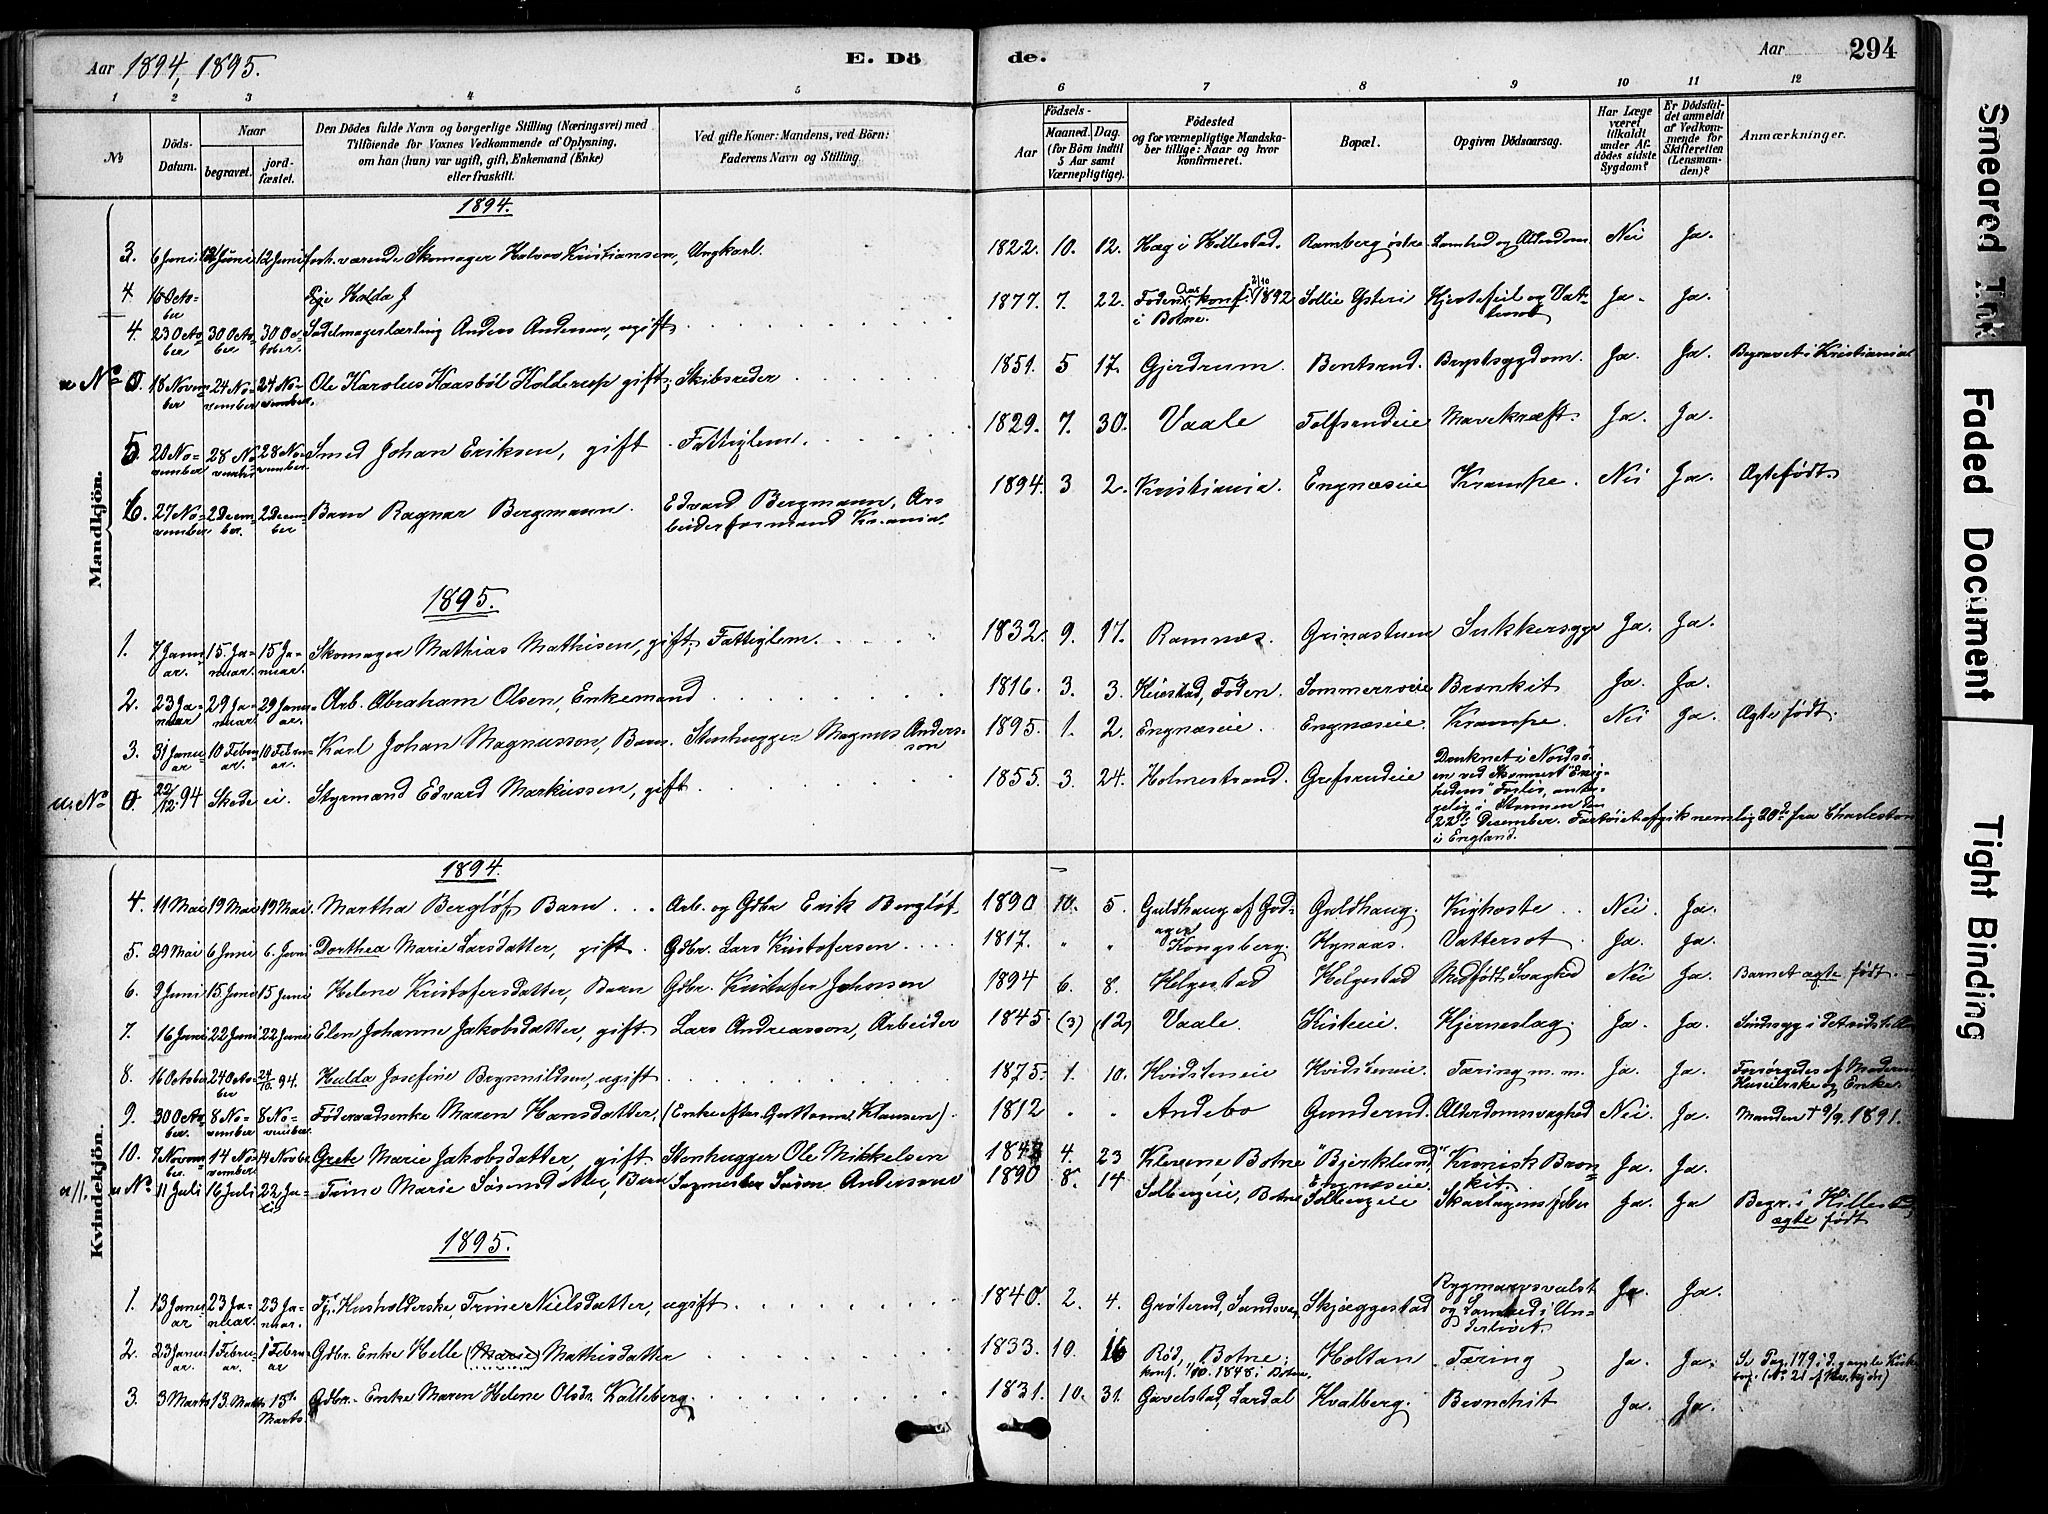 Aar 1894, 1895.
E. Dö
de.
Aar
294
1 2 3 4 5 6 7 8 9 10 11 12
No
Döds-Datum.
Naar
begravet.
jord-fæstet.
Den Dödes fulde Navn og borgerlige Stilling (Næringsvei) med
Tilföiende for Voxnes Vedkommende af Oplysning,
om han (hun) var ugift, gift, Enkemand (Enke)
eller fraskilt.
Ved gifte Koner: Mandens, ved Börn:
Faderens Navn og Stilling.
Födsels-
Aar
Maaned. Dag.
(for Börn indtil
5 Aar samt
Værnepligtige).
Födested
og for værnepligtige Mandska-
ber tillige: Naar og hvor
konfirmeret.
Bopæl.
Opgiven Dödsaarsag.
Har Læge
været
tilkaldt
under Af-
dödes sidste
Sygdom?
Er Dödsfal-
det anmeldt
af Vedkom-
mende for
Skifteretten
(Lensman-
den)?
Anmærkninger.
Mandkjön.
1894.
3. 6 Juni 12 Juni 12 Juni forh.værende Skomager Halvor Kristiansen, Ungkarl. 1822. 10. 12. Hæg i Hillestad. Ramberg östre Nei Ja.
4 16 Octo-ber Pige Hulda J
4. 23 Octo-ber 30 Octo-ber 30 Oc-tober. Sadelmagerlærling Anders Andersen, ugift 1877. 7. 22. konf. 2/10 1892 i Botne. Sollie Hjertefeil og Vat-tersot Ja. Ja.
u No 0. 18 Novem-ber 24 No-vember 24 No-vember. Ole Karolus Kaasböl Kolderup gift, Skibsreder 1851. 5 17. Gjerdrum. Bentsrud. Brystsygdom. Ja. Ja. Begravet i Kristiania
5. 20 No-vember 28 No-vember 28 No-vember. Smed Johan Eriksen, gift. Fattiglem. 1829. 7. 30. Vaale Tolfsrudeie Mavekræft. Ja. Ja.
6. 27 No-vember 2 Decem-ber. 2 Decem-ber Barn Ragnar Bergmann. Edvard Bergmann, Ar-beiderformand Kr.ania. 1894. 3 2. Kristiania. Engnæseie Krampe. Nei Ja. Ægtefödt.
1895.
1. 7 Janu-ar. 15. Ja-nuar. 15 Ja-nuar. Skomager Mathias Mathisen, gift, Fattiglem. 1832. 9. 17. Ramnæs. Grinastuen Sukkersyge Ja. Ja.
2. 23 Ja-nuar 29 Ja-nuar. 29 Janu-ar. Arb. Abraham Olsen, Enkemand 1816. 3. 3. Sommerroeie Bronkit Ja. Ja.
3. 31 Janu-ar 10 Febru-ar. 10 Febru-ar. Karl Johan Magnusson, Barn. Stenhugger Magnus Anders-son 1895. 1. 2. Engnæseie. Engnæseie. Krampe. Nei Ja. Ægte födt.
u. No 0. 22/12.94 Skede ei. Styrmand Edvard Markussen, gift 1855. 3. 24. Holmestrand. Grefsrudeie Druknet i Nordsö-
en ved Skonnert "Enig-
heden"s Forlis,
i Stormen den
22de Desember. Fartöiet afgik nemlig 20de fra Charleston
i England.
Kvindekjön.
1894.
4. 11 Mai 19 Mai 19 Mai. Martha Berglöf Barn. Arb. og Gdbr Erik Berglöf. 1890 10. 5. Guldhaug af Guldhaug. Kighoste Nei. Ja.
5. 29 Mai 6 Juni 6. Juni Dorthea Marie Larsdatter, gift. Gdbr. Lars Kristofersen 1817. " " Kongsberg. Kynaas. Vattersot Ja. Ja.
6. 9 Juni 15. Juni 15 Juni Helene Kristofersdatter, Barn Gdbr. Kristofer Johnsen 1894 6. 8. Helgestad Helgestad Medfödt Svaghed Nei Ja. Barnet ægte födt.
7. 16 Juni 22 Juni 22 Juni Elen Johanne Jakobsdatter, gift Lars Andreasson, Arbeider 1845 (3) (12) Vaale. Kisteeie. Hjerneslag. Ja. Ja.
8. 16 October 24 Octo-ber 24/10. 94. Hulda Josefine Brynnildsen, ugift 1875. 1. 10. Hvidsteneie Hvidsteneie. Tæring m.m. Ja. Ja. Forsörgedes af Moderen
og Enke.
9. 30 Octo-ber. 8 No-vember 8 No-vember. Föderaadsenke Maren Hansdatter. (Enke efter Guttorm Klausen). 1812 " " Andebo Gunderud. Alderdomssvaghed Nei. Ja. Manden † 9/9. 1891.
10. 7 Novem-ber. 14 No-vember 14 Novbr. Grete Marie Jakobsdatter, gift. Stenhugger Ole Mikkelsen 184 4. 23 Klevene Botne "Bjerklund" Engnæseie Kronisk Bron-kit Ja. Ja.
u No 11 Juli 16 Juli 22 Ju-li Trine Marie Barn Sören Andersens 1890 8. 14 Solbergeie, Botne Solbergeie Skarlagensfeber Ja. Ja Begr. i Hillest
ægte födt
1895.
1. 13 Janu-ar 23 Ja-nuar. 23 Ja-nuar. Husholderske, Trine Nielsdatter, ugift. 1840. 2. 4. Gröterud, Sandsvær, Skjæggestad Rygmarvsvulst og Lamhed i Un-derlivet. Ja. Ja.
2. 23 Janu-ar. 1 Febru-ar. 1 Febru-ar Gdbr. Enke Helle (Marie) Mathisdatter 1833. 10. 16 Röd, Botne, konf. 1848 i Botne. Holtan Tæring Ja. Ja. Se Pag. 179 i d. gamle Kirke-
bog. (No 21 af Kv.kjön)
3. 3 Marts 13. Marts 15de Marts. Gdbr. Enke Maren Helene Olsdr. Kalleberg. 1831. 10. 31. Gavelstad, Lardal Hvalberg. Bronchit Ja. Ja.
Smeared Ink
Faded Document
Tight Binding